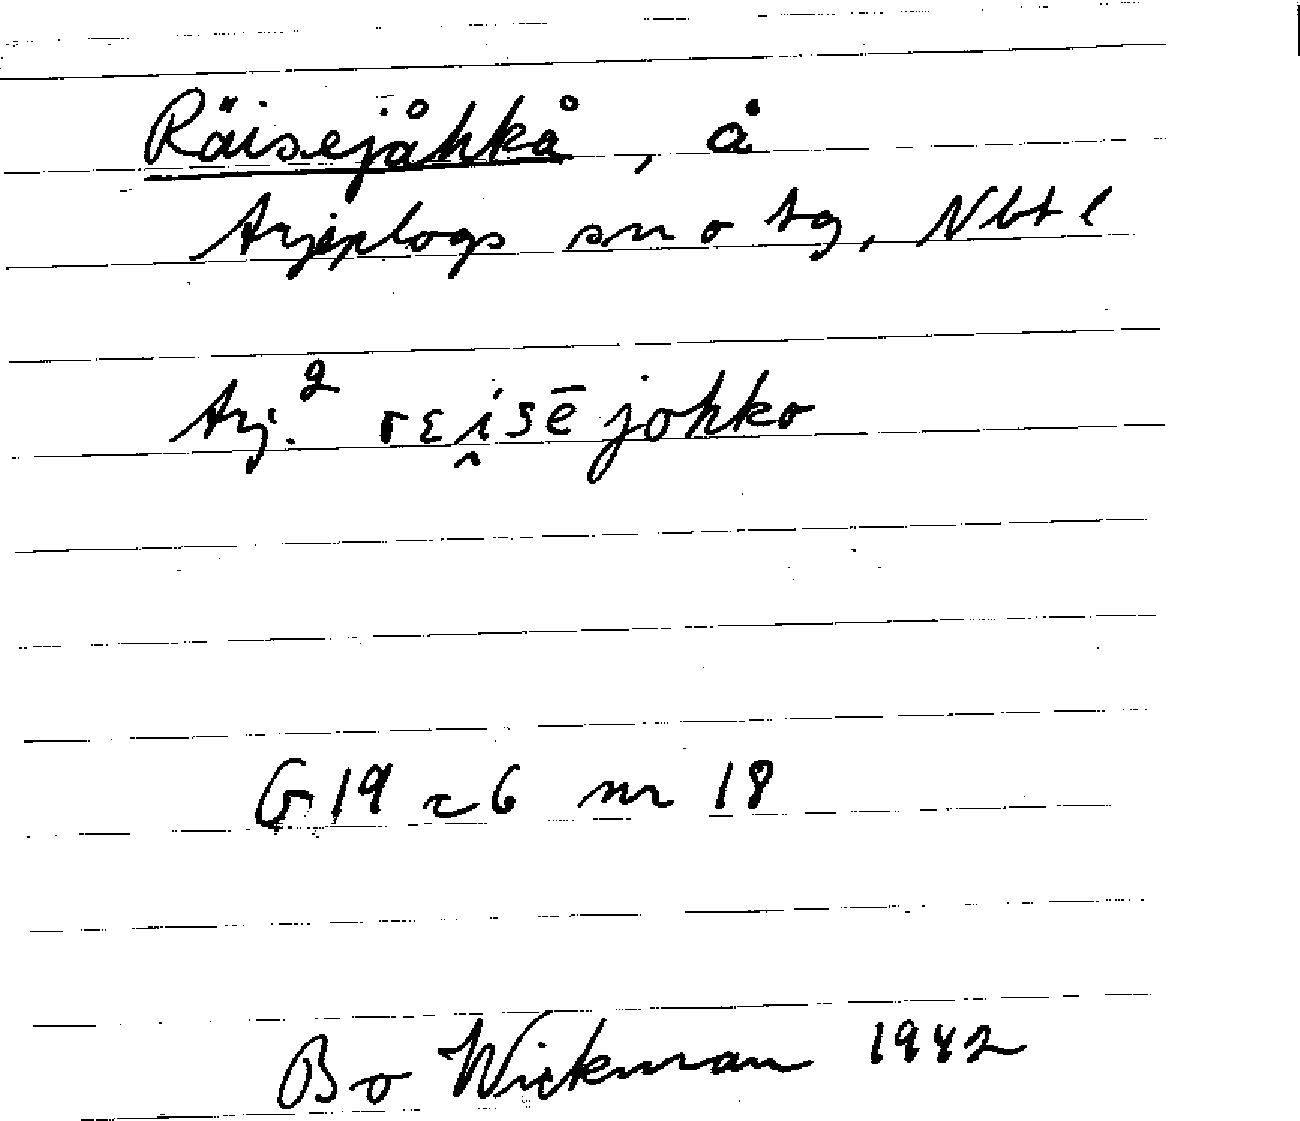 Räisejåhkå, å
Arjeplogs sn o tg, Nbt l
Arj.² rɛi̯sē johko
G19 c6 nr 18
Bo Wickman 1942